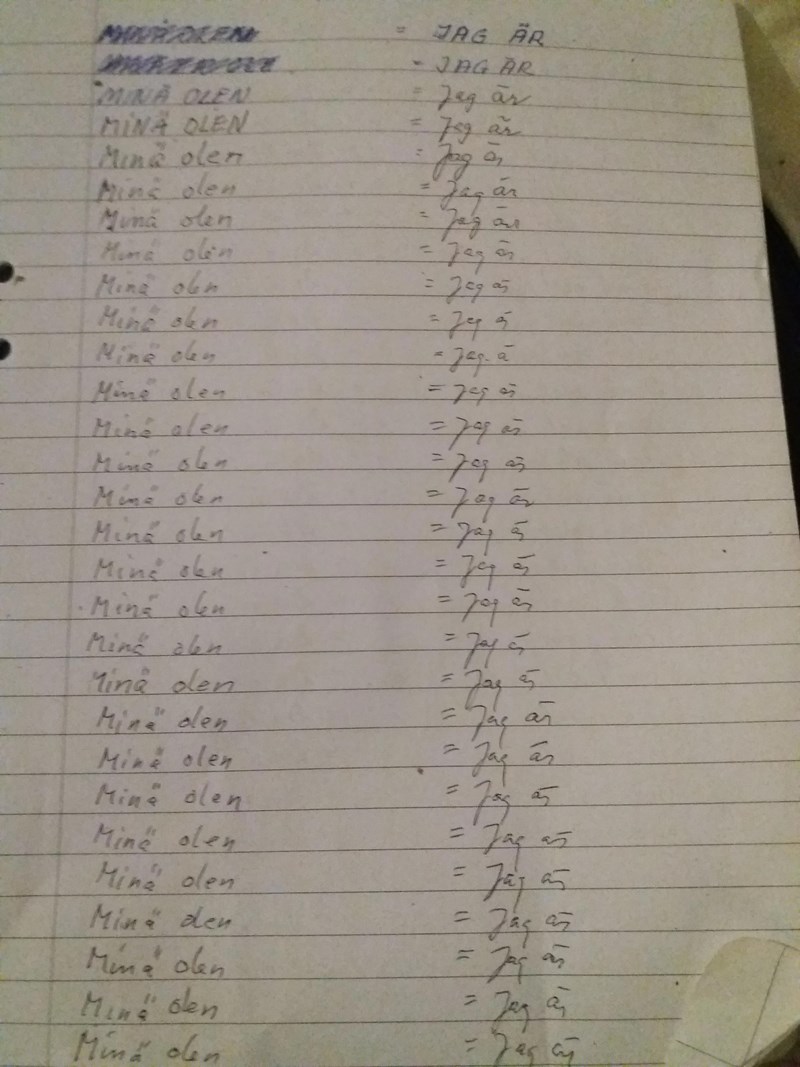 MINÄ OLEN = JAG ÄR
= JAG ÄR
MINÄ OLEN = Jag är
MINÄ OLEN = Jag är
Minä olen = Jag är
Minä olen = Jag är
Minä olen = Jag är
Minä olen = Jag är
Minä olen = Jag är
Minä olen = Jag är
Minä olen = Jag är
Minä olen = Jag är
Minä olen = Jag är
Minä olen = Jag är
Minä olen = Jag är
Minä olen = Jag är
Minä olen = Jag är
Minä olen = Jag är
Minä olen = Jag är
Minä olen = Jag är
Minä olen = Jag är
Minä olen = Jag är
Minä olen = Jag är
Minä olen = Jag är
Minä olen = Jag är
Minä olen = Jag är
Minä olen = Jag är
Minä olen = Jag är
Minä olen = Jag är